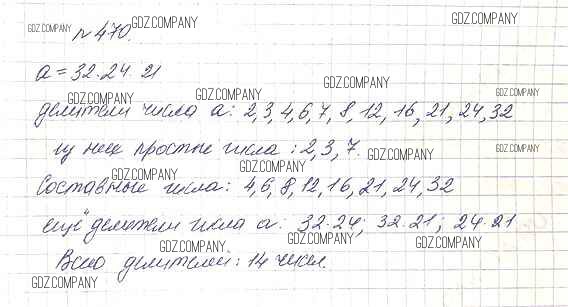 GDZ.COMPANY
GDZ.COMPANY № 470. GDZ.COMPANY
a = 32·24·21
GDZ.COMPANY
GDZ.COMPANY GDZ.COMPANY GDZ.COMPANY
делители числа a: 2,3,4,6,7,8,12,16,21,24,32
из них простые числа: 2,3,7. GDZ.COMPANY GDZ.COMPANY
GDZ.COMPANY GDZ.COMPANY
Составные числа: 4,6,8,12,16,21,24,32
ещё делители числа a: 32·24; 32·21; 24·21
GDZ.COMPANY GDZ.COMPANY GDZ.COMPANY
Всего делителей: 14 чисел.
GDZ.COMPANY